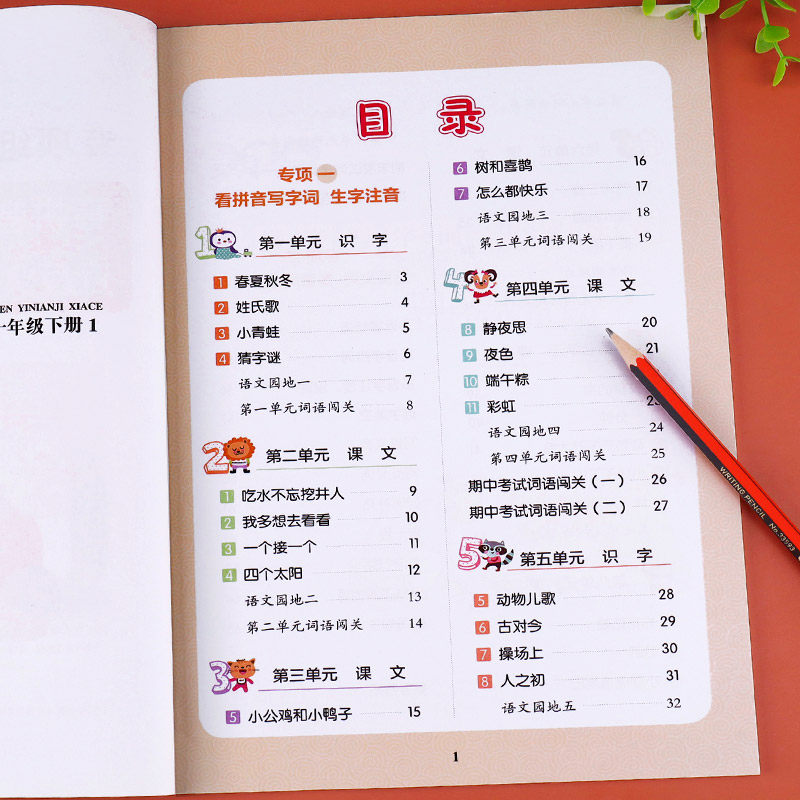 EN YINIANJI XIACE
年级下册 1
目 录
专项 一
看拼音写字词 生字注音
1 第一单元 识 字
1 春夏秋冬 3
2 姓氏歌 4
3 小青蛙 5
4 猜字谜 6
语文园地一 7
第一单元词语闯关 8
2 第二单元 课 文
1 吃水不忘挖井人 9
2 我多想去看看 10
3 一个接一个 11
4 四个太阳 12
语文园地二 13
第二单元词语闯关 14
3 第三单元 课 文
5 小公鸡和小鸭子 15
6 树和喜鹊 16
7 怎么都快乐 17
语文园地三 18
第三单元词语闯关 19
4 第四单元 课 文
8 静夜思 20
9 夜色 21
10 端午粽
11 彩虹 23
语文园地四 24
第四单元词语闯关 25
期中考试词语闯关（一） 26
期中考试词语闯关（二） 27
5 第五单元 识 字
5 动物儿歌 28
6 古对今 29
7 操场上 30
8 人之初 31
语文园地五 32
1
WRITING PENCIL No.33593